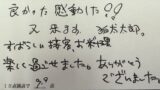 良かった 感動した!!
又 来ます。
すばらしい接客 お料理
楽しく過せました。ありがとう
ございました。